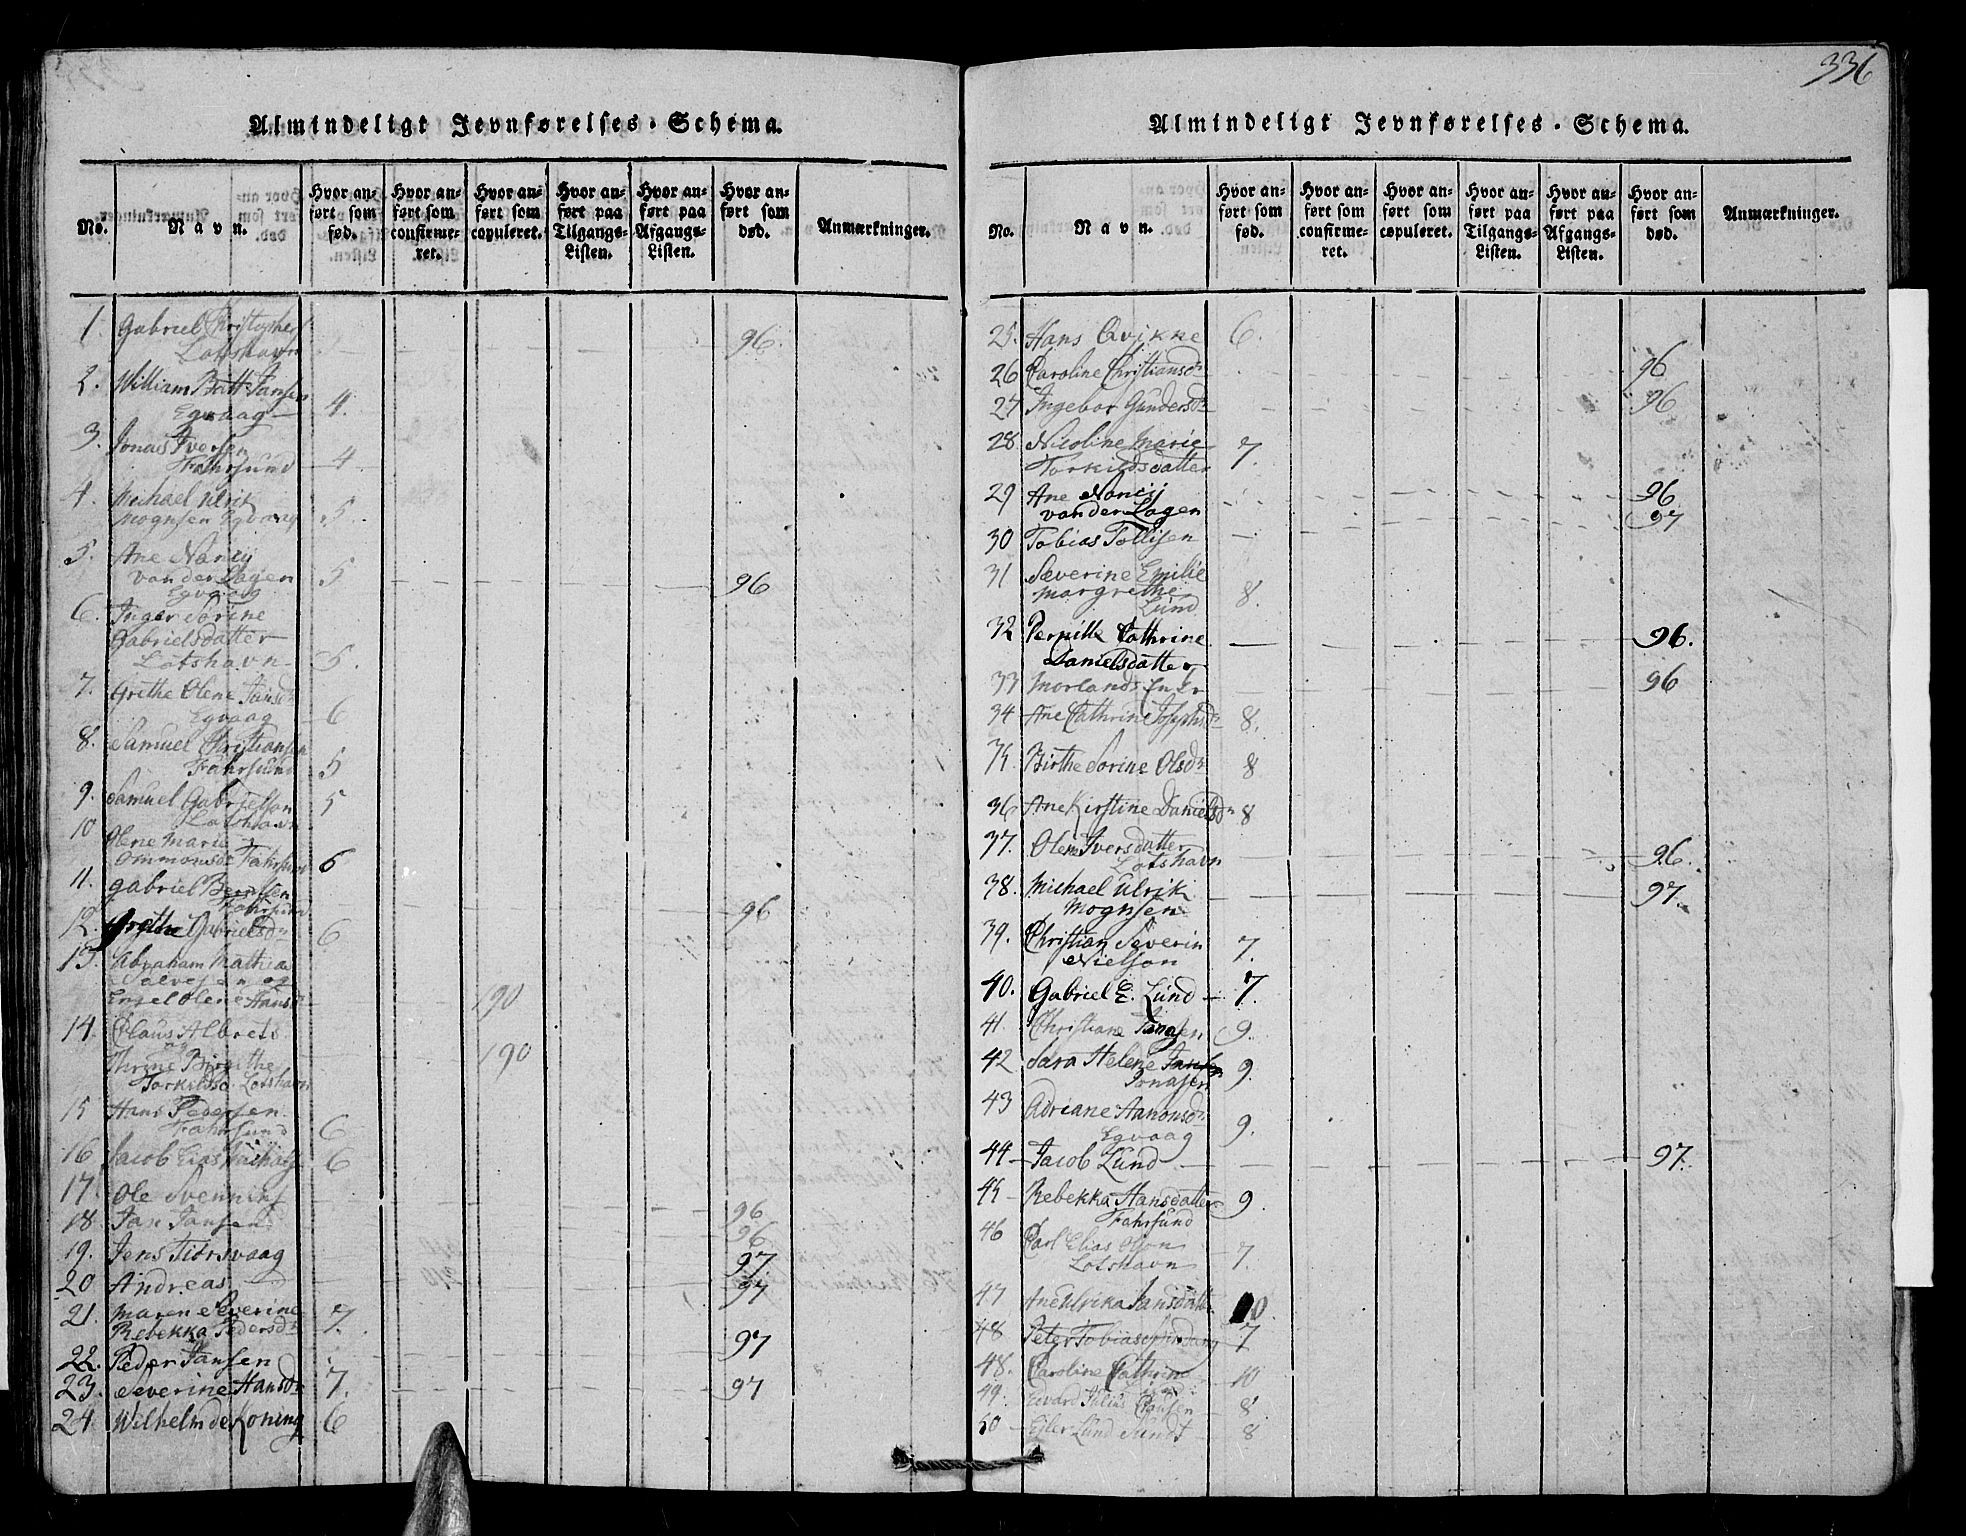 336
Almindeligt Jevnførelses-Schema.
No.
Navn.
Hvor an-
ført som
fød.
Hvor an-
ført som
confirme-
ret.
Hvor an-
ført som
copuleret.
Hvor an-
ført paa
Tilgangs-
Listen.
Hvor an-
ført paa
Afgangs-
Listen.
Hvor an-
ført som
død.
Anmærkninger.
1. Gabriel Christophers
Lotshavn 96.
2. William Batt Jansen
Egvaag 4.
3. Jonas Iversen
Fahrsund 4
4. Michael Ulrik
Mognsen Egvaag 5.
5. Ane Nancÿ
van der Lagen 5 96
Egvaag
6. Inger Sorine
Gabrielsdatter
Lotshavn 5.
7. Grethe Olene Jansdr
Egvaag 6
8. Samuel Christiansen
Fahrsund 5
9. Samuel Gabrielson 5
Lotshavn
10 Olene Marie
Ommonsdr Fahrsund 6
11. Gabriel Berntsen
Fahrsund 96
12. Grethe Gabrielsdr 6
13. Abraham Mathias
Salvesen og
Engel Olene Hansdr 190
14. Claus Albrets
og
Thrine Birgithe 190
Torkildsd. Lotshavn
15 Hans Pedersen
Fahrsund 6
16 Jacob Elias 6
17. Ole Svennings 96
18 Jan Jansen 96
19. Jens Tidrsvaag 97
20 Andreas 97
21. Maren Severine
Rebekka Pedersdr 7.
22. Peder Jansen 97
23. Severine Hansdr 7. 97
24. Wilhelm de Koning 6
Almindeligt Jevnførelses-Schema.
No.
Navn.
Hvor an-
ført som
fød.
Hvor an-
ført som
confirme-
ret.
Hvor an-
ført som
copuleret.
Hvor an-
ført paa
Tilgangs-
Listen.
Hvor an-
ført paa
Afgangs-
Listen.
Hvor an-
ført som
død.
Anmærkninger.
25. Hans Qvikne 6.
26 Caroline Christiansdr 96
27 Ingebor Gundersdr 96
28 Nicoline Marie
Torkildsdatter 7.
29 Ane Nancÿ 96
van der Lagen
30 Tobias Tollisen 97
31 Severine Emilie
Margrethe 8.
Lund
32 Pernille Cathrine 96.
Danielsdatter
33 Morlands 96
34 Ane Cathrine Josephsdr 8.
35. Birthe Sorine Olsdr 8
36 Ane Kirstine Danielsdr 8
37. Olene Iversdatter
Lotshavn 96.
38. Michael Ulrik 97.
Mognsen
39. Christian Severin
Nielson 7.
40. Gabriel E. Lund 7.
41. Christiane Jonasen 9.
42 Sara Helene Jansen
Jonasen 9.
43 Adriane Aanonsdr
Egvaag 9.
44 Jacob Lund 97.
45 Rebekka Hansdatter 9.
Fahrsund
46 Carl Elias Olson
Lotshavn 7.
47 Ane Ulrika Jansdatter 10.
48 Peter Tobias 7
48. Caroline Cathrine 10
49. Edvard Julius Clausen 8
50 Ejler Lund Sundt 8